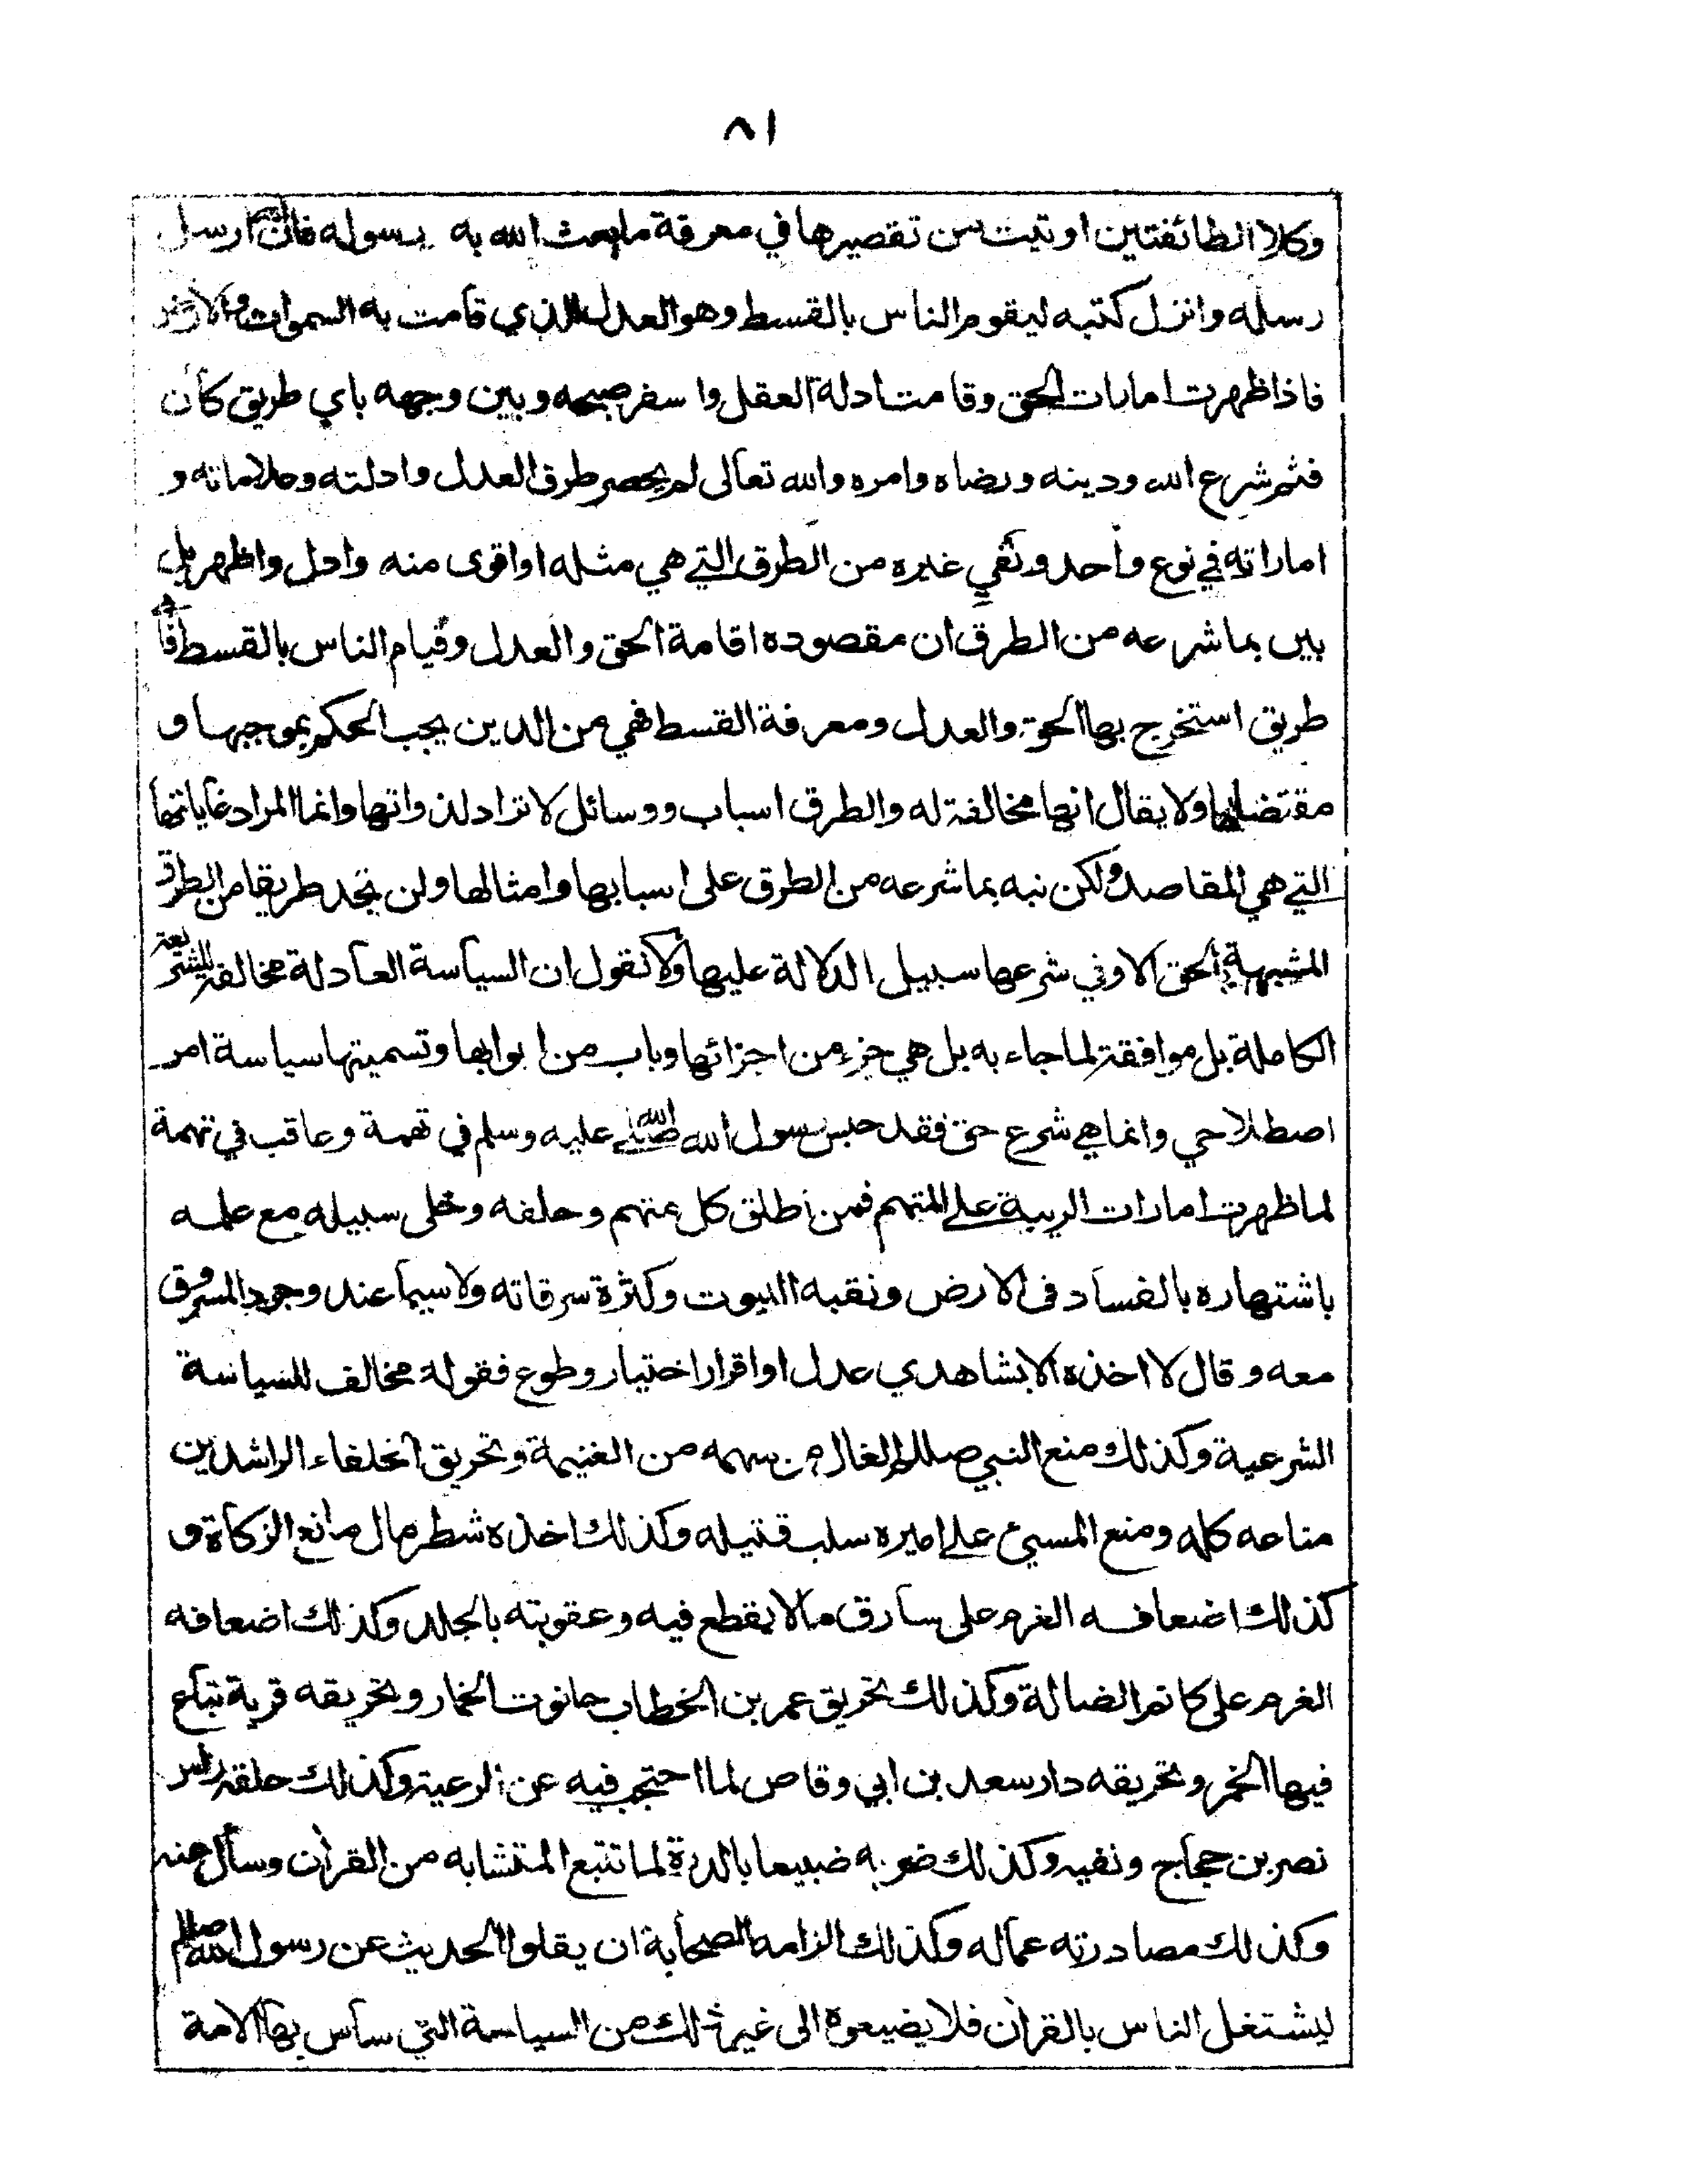 ٨١
وكلا الطائفتين اوتيت من تقصيرها في معرفة ما بعث الله به رسوله فان الله ارسل
رسله وانزل كتبه ليقوم الناس بالقسط وهو العدل الذي قامت به السموات والارض
فاذا ظهرت امارات الحق وقامت ادلة العقل واسفر صبحه وبين وجهه باي طريق كان
فثم شرع الله ودينه ورضاه وامره والله تعالى لم يحصر طرق العدل وادلته وعلاماته و
اماراته في نوع واحد ونفي غيره من الطرق التي هي مثله او اقوى منه وادل واظهر بل
بين بما شرعه من الطرق ان مقصوده اقامة الحق والعدل وقيام الناس بالقسط فأي
طريق استخرج بها الحق والعدل ومعرفة القسط فهي من الدين يجب الحكم بموجبها و
مقتضاها ولا يقال انها مخالفة له والطرق اسباب ووسائل لا تراد لذواتها وانما المراد غاياتها
التي هي المقاصد ولكن نبه بما شرعه من الطرق على اسبابها وامثالها ولن تجد طريقا من الطرق
المشبهة الحق الا وفي شرعها سبيل الدلالة عليها ولا نقول ان السياسة العادلة مخالفة للشريعة
الكاملة بل موافقة لما جاء به بل هي جزء من اجزائها وباب من ابوابها وتسميتها سياسة امر
اصطلاحي وانما هي شرع حق فقد حبس رسول الله صلى الله عليه وسلم في تهمة وعاقب في تهمة
لما ظهرت امارات الريبة على المتهم فمن اطلق كل متهم وحلفه وخلى سبيله مع علمه
باشتهاره بالفساد في الارض ونقبه البيوت وكثرة سرقاته ولا سيما عند وجود المسروق
معه وقال لا اخذه الا بشاهدي عدل او اقرار اختيار وطوع فقوله مخالف للسياسة
الشرعية وكذلك منع النبي صللم الغال من سهمه من الغنيمة وتحريق الخلفاء الراشدين
متاعه كله ومنع المسيء على اميره سلب قتيله وكذلك اخذه شطر مال مانع الزكاة و
كذلك اضعافه الغرم على سارق ما لا يقطع فيه وعقوبته بالجلد وكذلك اضعافه
الغرم على كاتم الضالة وكذلك تحريق عمر بن الخطاب حانوت الخمار وتحريقه قرية تباع
فيها الخمر وتحريقه دار سعد بن ابي وقاص لما احتجب فيه عن الرعية وكذلك حلقه راس
نصر بن حجاج ونفيه وكذلك ضربه ضبيعا بالدرة لما تتبع المتشابه من القرآن وسأل عنه
وكذلك مصادرته عماله وكذلك الزامه الصحابة ان يقلوا الحديث عن رسول الله صللم
ليشتغل الناس بالقرآن فلا يضيعوه الى غير ذلك من السياسة التي ساس بها الامة